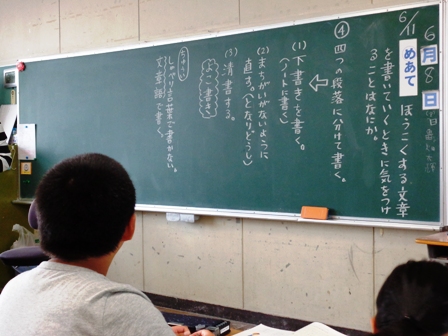 6月8日
6/11
めあて
ほうこくする文章
を書いていくときに気をつけ
ることはなにか。
④四つの段落に分けて書く。
(1)下書きを書く。
(ノートに書く)
(2)まちがいがないように
直す。(となりどうし)
(3)清書する。
よこ書き
しゃべり言葉で書かない。
文章語で書く。